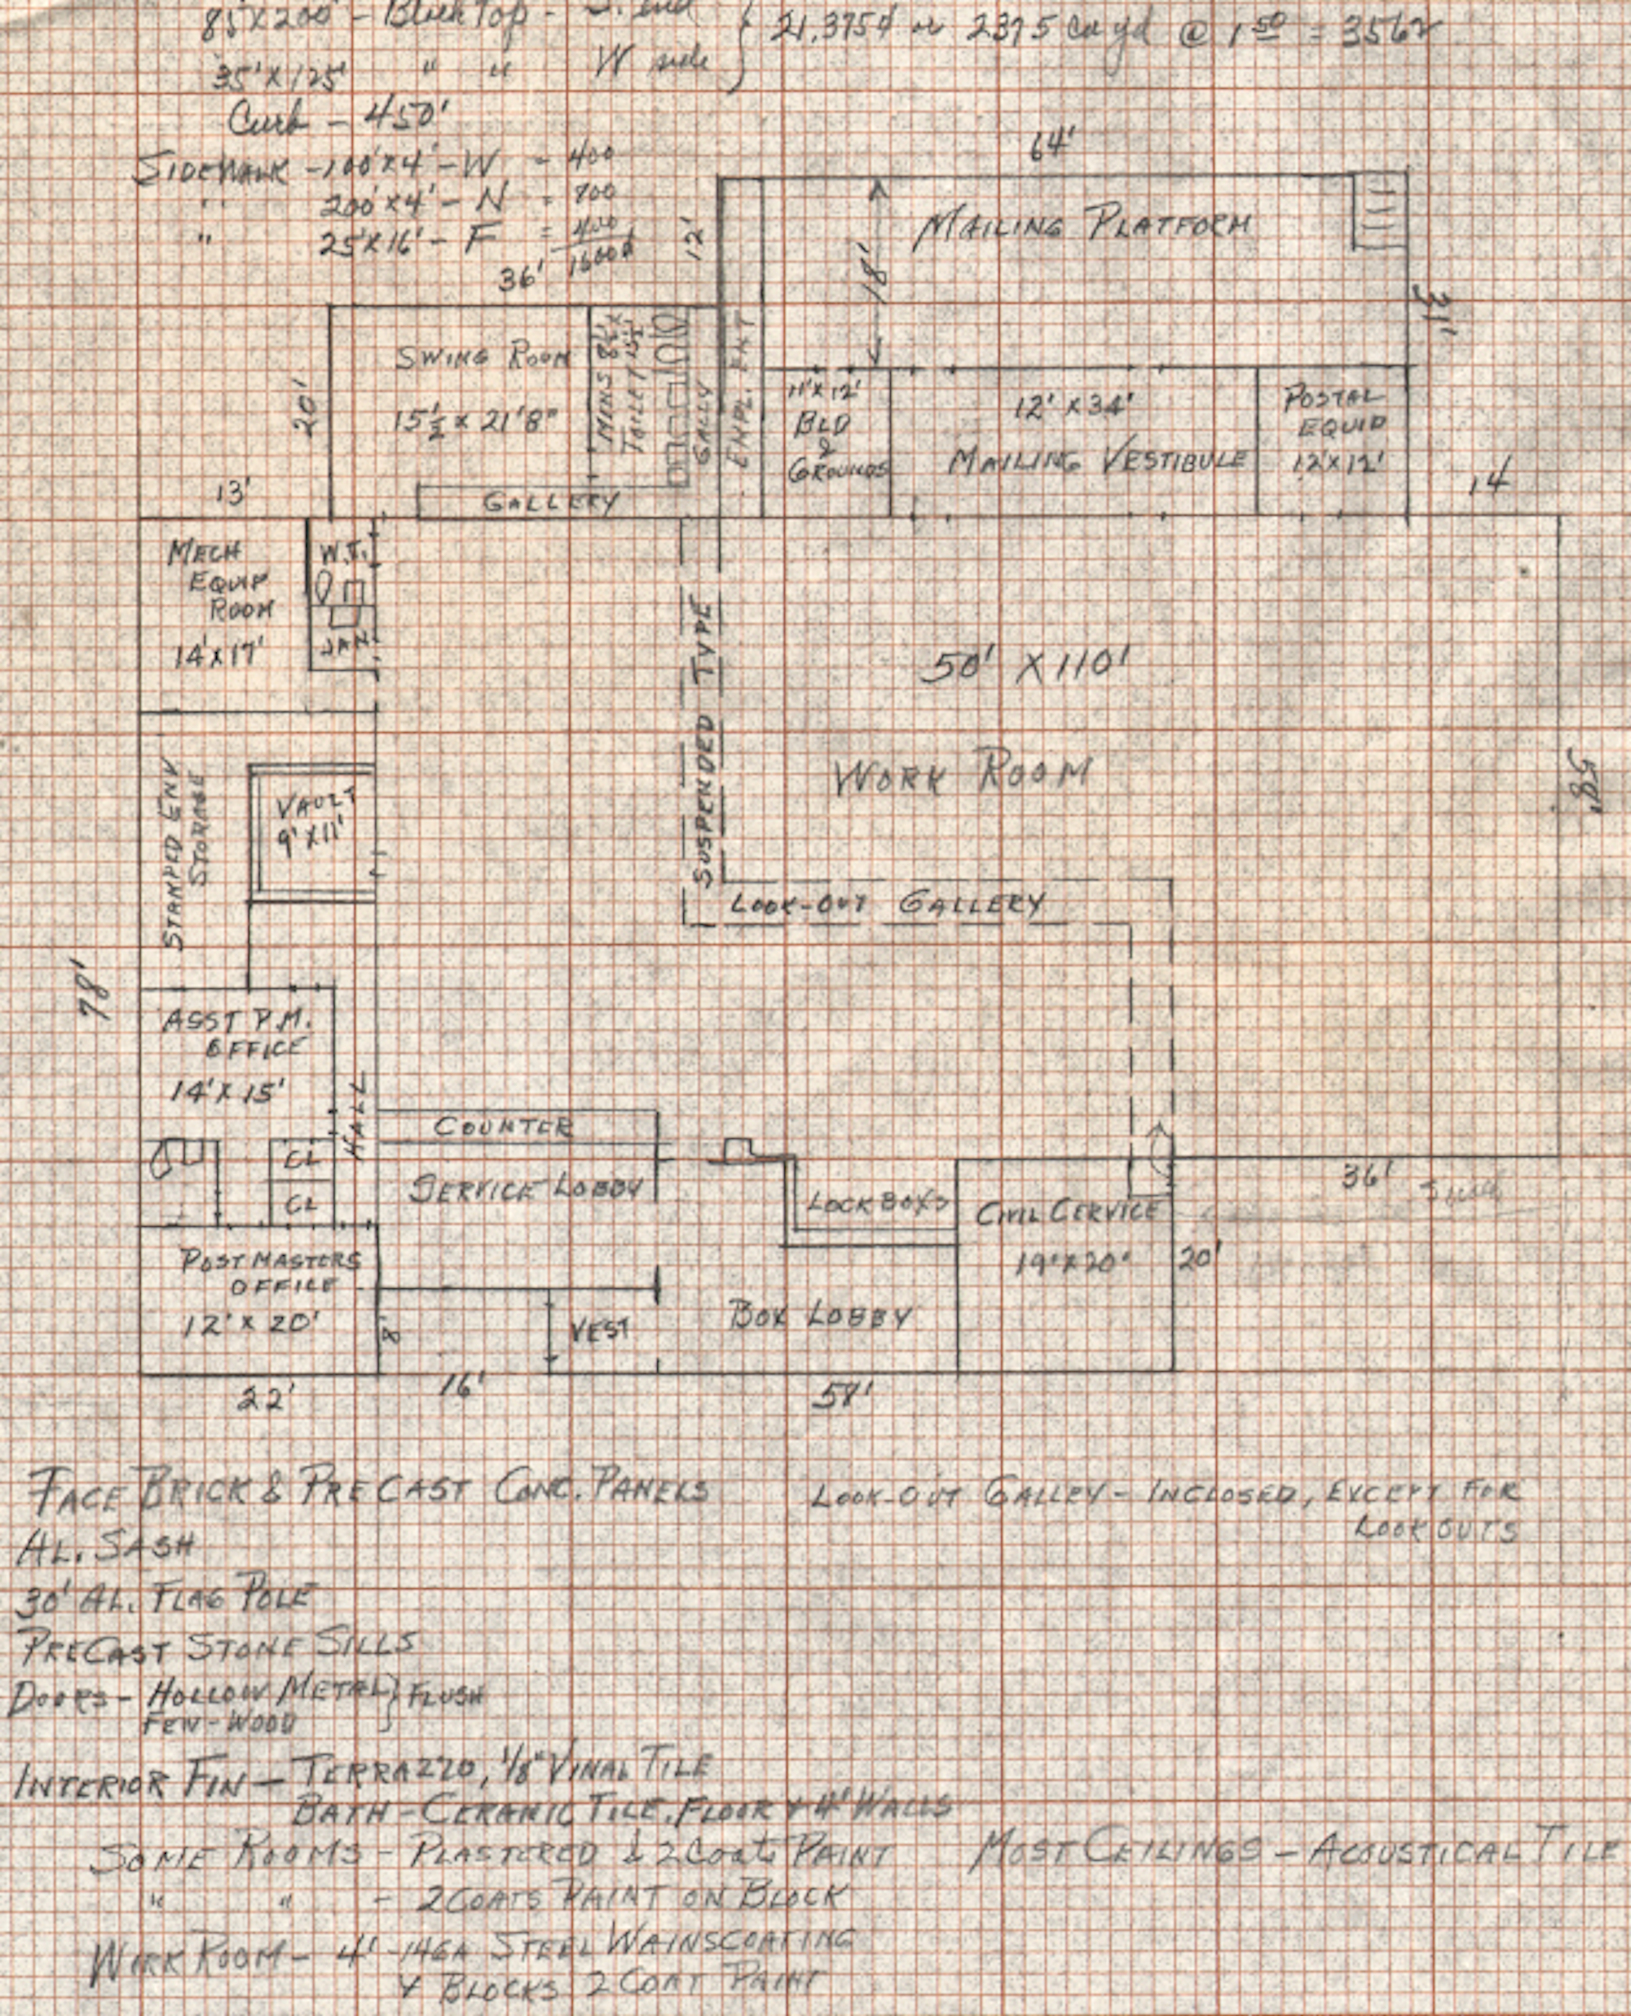 85'X200' - Black Top - S. end
21.375¢ or 2375 cu yd @ 1 50 = 3562
35'X125' " " W side
Curb - 450'
SIDEWALK - 100'X4' - W = 400
" 200'X4' - N = 700
" 25'X16' - F = 400
1600
64'
12'
36'
18'
MAILING PLATFORM
31'
20'
SWING ROOM
15½ X 21'8"
MENS 8½ X
TOILET 15½
GALLY
EMPL. ENT
11'X12'
BLD
&
GROUNDS
12' X34'
MAILING VESTIBULE
POSTAL
EQUIP
12'X12'
13'
GALLERY
14
MECH
EQUIP
ROOM
14'X17'
W.T.
JAN
SUSPENDED TYPE
50' X110'
WORK ROOM
58'
STAMPED ENV
STORAGE
VAULT
9'X11'
LOOK-OUT GALLERY
78'
ASST P.M.
OFFICE
14'X15'
HALL
COUNTER
CL
CL
SERVICE LOBBY
LOCK BOXS
CIVIL CERVICE
19'X20'
36'
20'
POST MASTERS
OFFICE
12'X 20'
8
VEST
BOX LOBBY
22'
16'
57'
FACE BRICK & PRE CAST CONC. PANELS
AL. SASH
30' AL. FLAG POLE
PRECAST STONE SILLS
DOORS - HOLLOW METAL } FLUSH
FEW - WOOD
LOOK-OUT GALLEY - INCLOSED, EXCEPT FOR
LOOK OUTS
INTERIOR FIN - TERRAZZO, 1/8" VINAL TILE
BATH - CERAMIC TILE, FLOOR & 4' WALLS
SOME ROOMS - PLASTERED & 2 Coats PAINT
" " - 2 COATS PAINT ON BLOCK
MOST CEILINGS - ACOUSTICAL TILE
WORK ROOM - 4' - 14GA STEEL WAINSCOATING
& BLOCKS 2 COAT PAINT